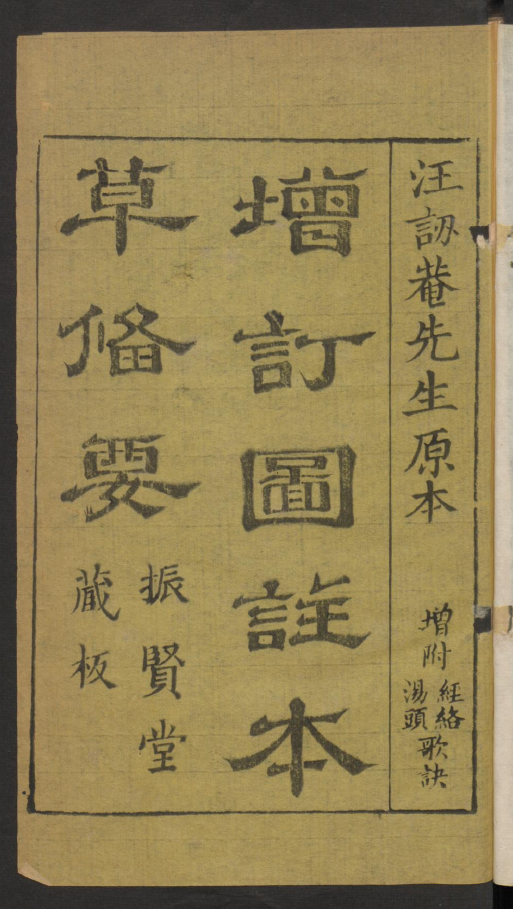 汪訒菴先生原本
增附
經絡
湯頭
歌訣
增訂圖註本
草俻要
振賢堂
藏板